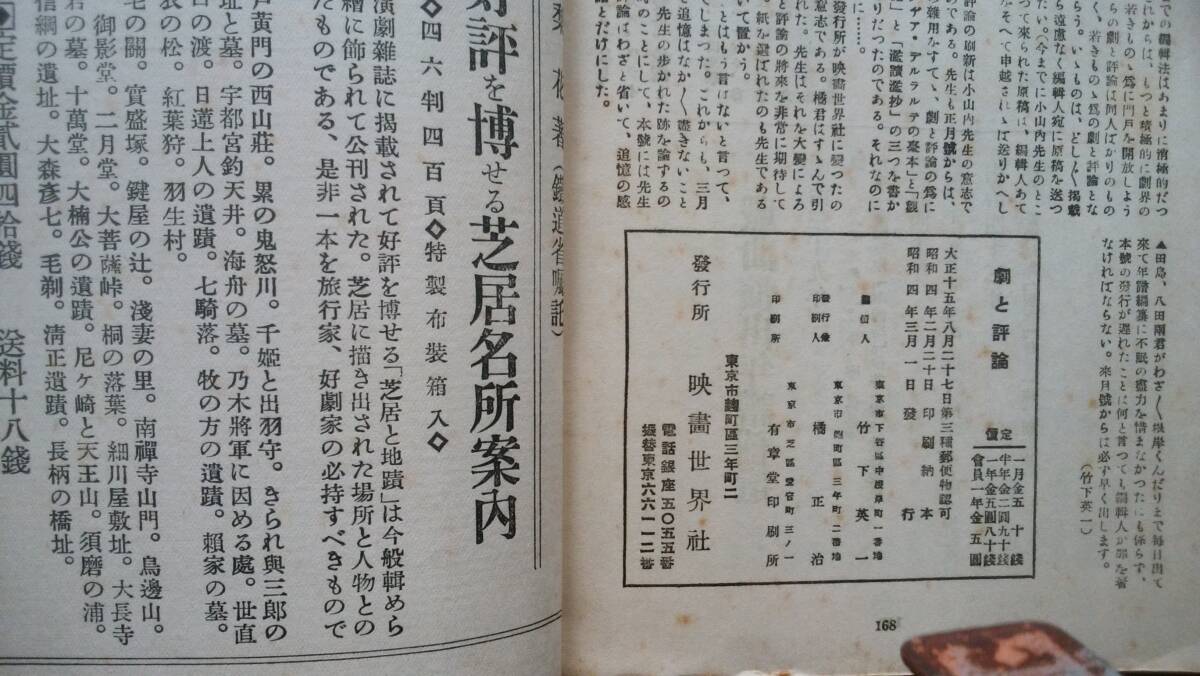 での編輯法はあまりに消極的だつ
れからは、もつと積極的に劇界の
若きものゝ爲に門戸を開放しよう
らの劇と評論は同人ばかりのもの
く、若きものゝ爲の劇と評論とな
らう。いゝものは、どし〳〵掲載
ら遠慮なく編輯人宛に原稿を送つ
たい。(今までに小山内先生のとこ
つて來られた原稿は、編輯人あて
へて申越されゝば送りかへし
評論の刷新は小山内先生の意志で
の雜用をすてゝ、劇と評論の爲に
のである。先生も正月號からは、
ア・デルラルテの臺本」と「觀
」と「濫讀濫抄」の三つを書か
りだつたのである。それなのに
……。
發行所が映畫世界社に變つたの
意志である。橘君はすゝんで引
れた。先生はそれを大變によろ
と評論の將來を非常に期待して
紙を選ばれたのも先生である
いて置かう。
はもう言ふまいと言つて、
てしまつた。これからも、三月
を追憶はなか〳〵盡きないこと
先生の歩かれた跡を論ずるの
時のことにして、本號には先生
論はわざと省いて、追憶の感
とだけにした。
▲田島、八田兩君がわざ〳〵根岸くんだりまで毎日出て
來て年譜編纂に不眠の盡力を惜まなかつたにも係らず、
本號の發行が遲れたことは何と言つても編輯人が罪を着
なければならない。來月號からは必ず早く出します。
(竹下英一)
劇と評論
定價
一月金五十錢
半年金二圓九十錢
一年金五圓八十錢
會員一年金五圓
大正十五年八月二十七日第三種郵便物認可
昭和四年二月二十日印刷納本
昭和四年三月一日發行
東京市下谷區中根岸町一番地
編輯人 竹下英一
東京市麹町區三年町二番地
發行兼印刷人 橘正治
東京市芝區愛宕町三ノ一
印刷所 有章堂印刷所
東京市麹町區三年町二
發行所 映畫世界社
電話銀座五〇五五番
振替東京六六一一二番
168
花著(鐵道省囑託)
好評を博せる芝居名所案内
◇四六判四百頁◇特製布裝箱入◇
演劇雜誌に掲載されて好評を博せる「芝居と地蹟」は今般輯めら
繪に飾られて公刊された。芝居に描き出された場所と人物との
たものである、是非一本を旅行家、好劇家の必持すべきもので
戸黄門の西山莊。累の鬼怒川。千姫と出羽守。きられ與三郎の
址と墓。宇都宮釣天井。海舟の墓。乃木將軍に因める處。世直
口の渡。日蓮上人の遺蹟。七騎落。牧の方の遺蹟。賴家の墓。
衣の松。紅葉狩。羽生村。
宅の關。實盛塚。鍵屋の辻。淺妻の里。南禪寺山門。鳥邊山。
御影堂。二月堂。大菩薩峠。桐の落葉。細川屋敷址。大長寺
君の墓。十萬堂。大楠公の遺蹟。尼ヶ崎と天王山。須磨の浦。
信綱の遺址。大森彦七。毛剃。清正遺蹟。長柄の橋址。
定價金貳圓四拾錢 送料十八錢